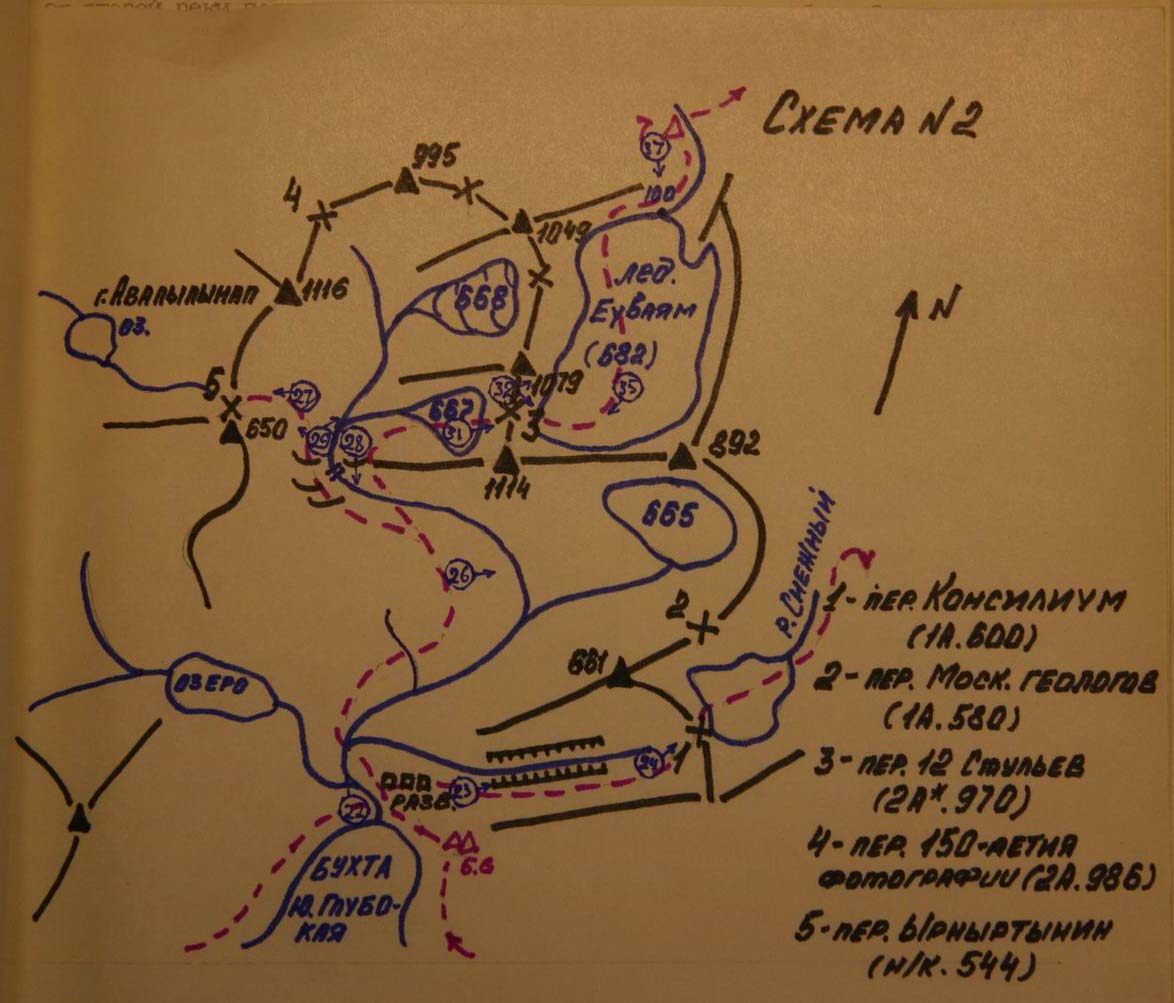 СХЕМА N2
995
37
4
100
1049
г. АВАПЫЛЫНАП
1116
668
ЛЕД.
ЕУВАЯМ
(682)
N
ОЗ.
5
27
32
1079
35
650
29
28
667
31
3
892
1114
665
26
Р. СНЕЖНЫЙ
2
681
ОЗЕРО
1
24
РАЗВ.
23
22
Б.Б
БУХТА
Ю. ГЛУБО-
КАЯ
1- ПЕР. КОНСИЛИУМ
(1А.600)
2- ПЕР. МОСК. ГЕОЛОГОВ
(1А.580)
3- ПЕР. 12 СТУЛЬЕВ
(2А*.970)
4- ПЕР. 150-ЛЕТИЯ
ФОТОГРАФИИ (2А.986)
5- ПЕР. ЫРНЫРТЫНИН
(Н/К. 544)